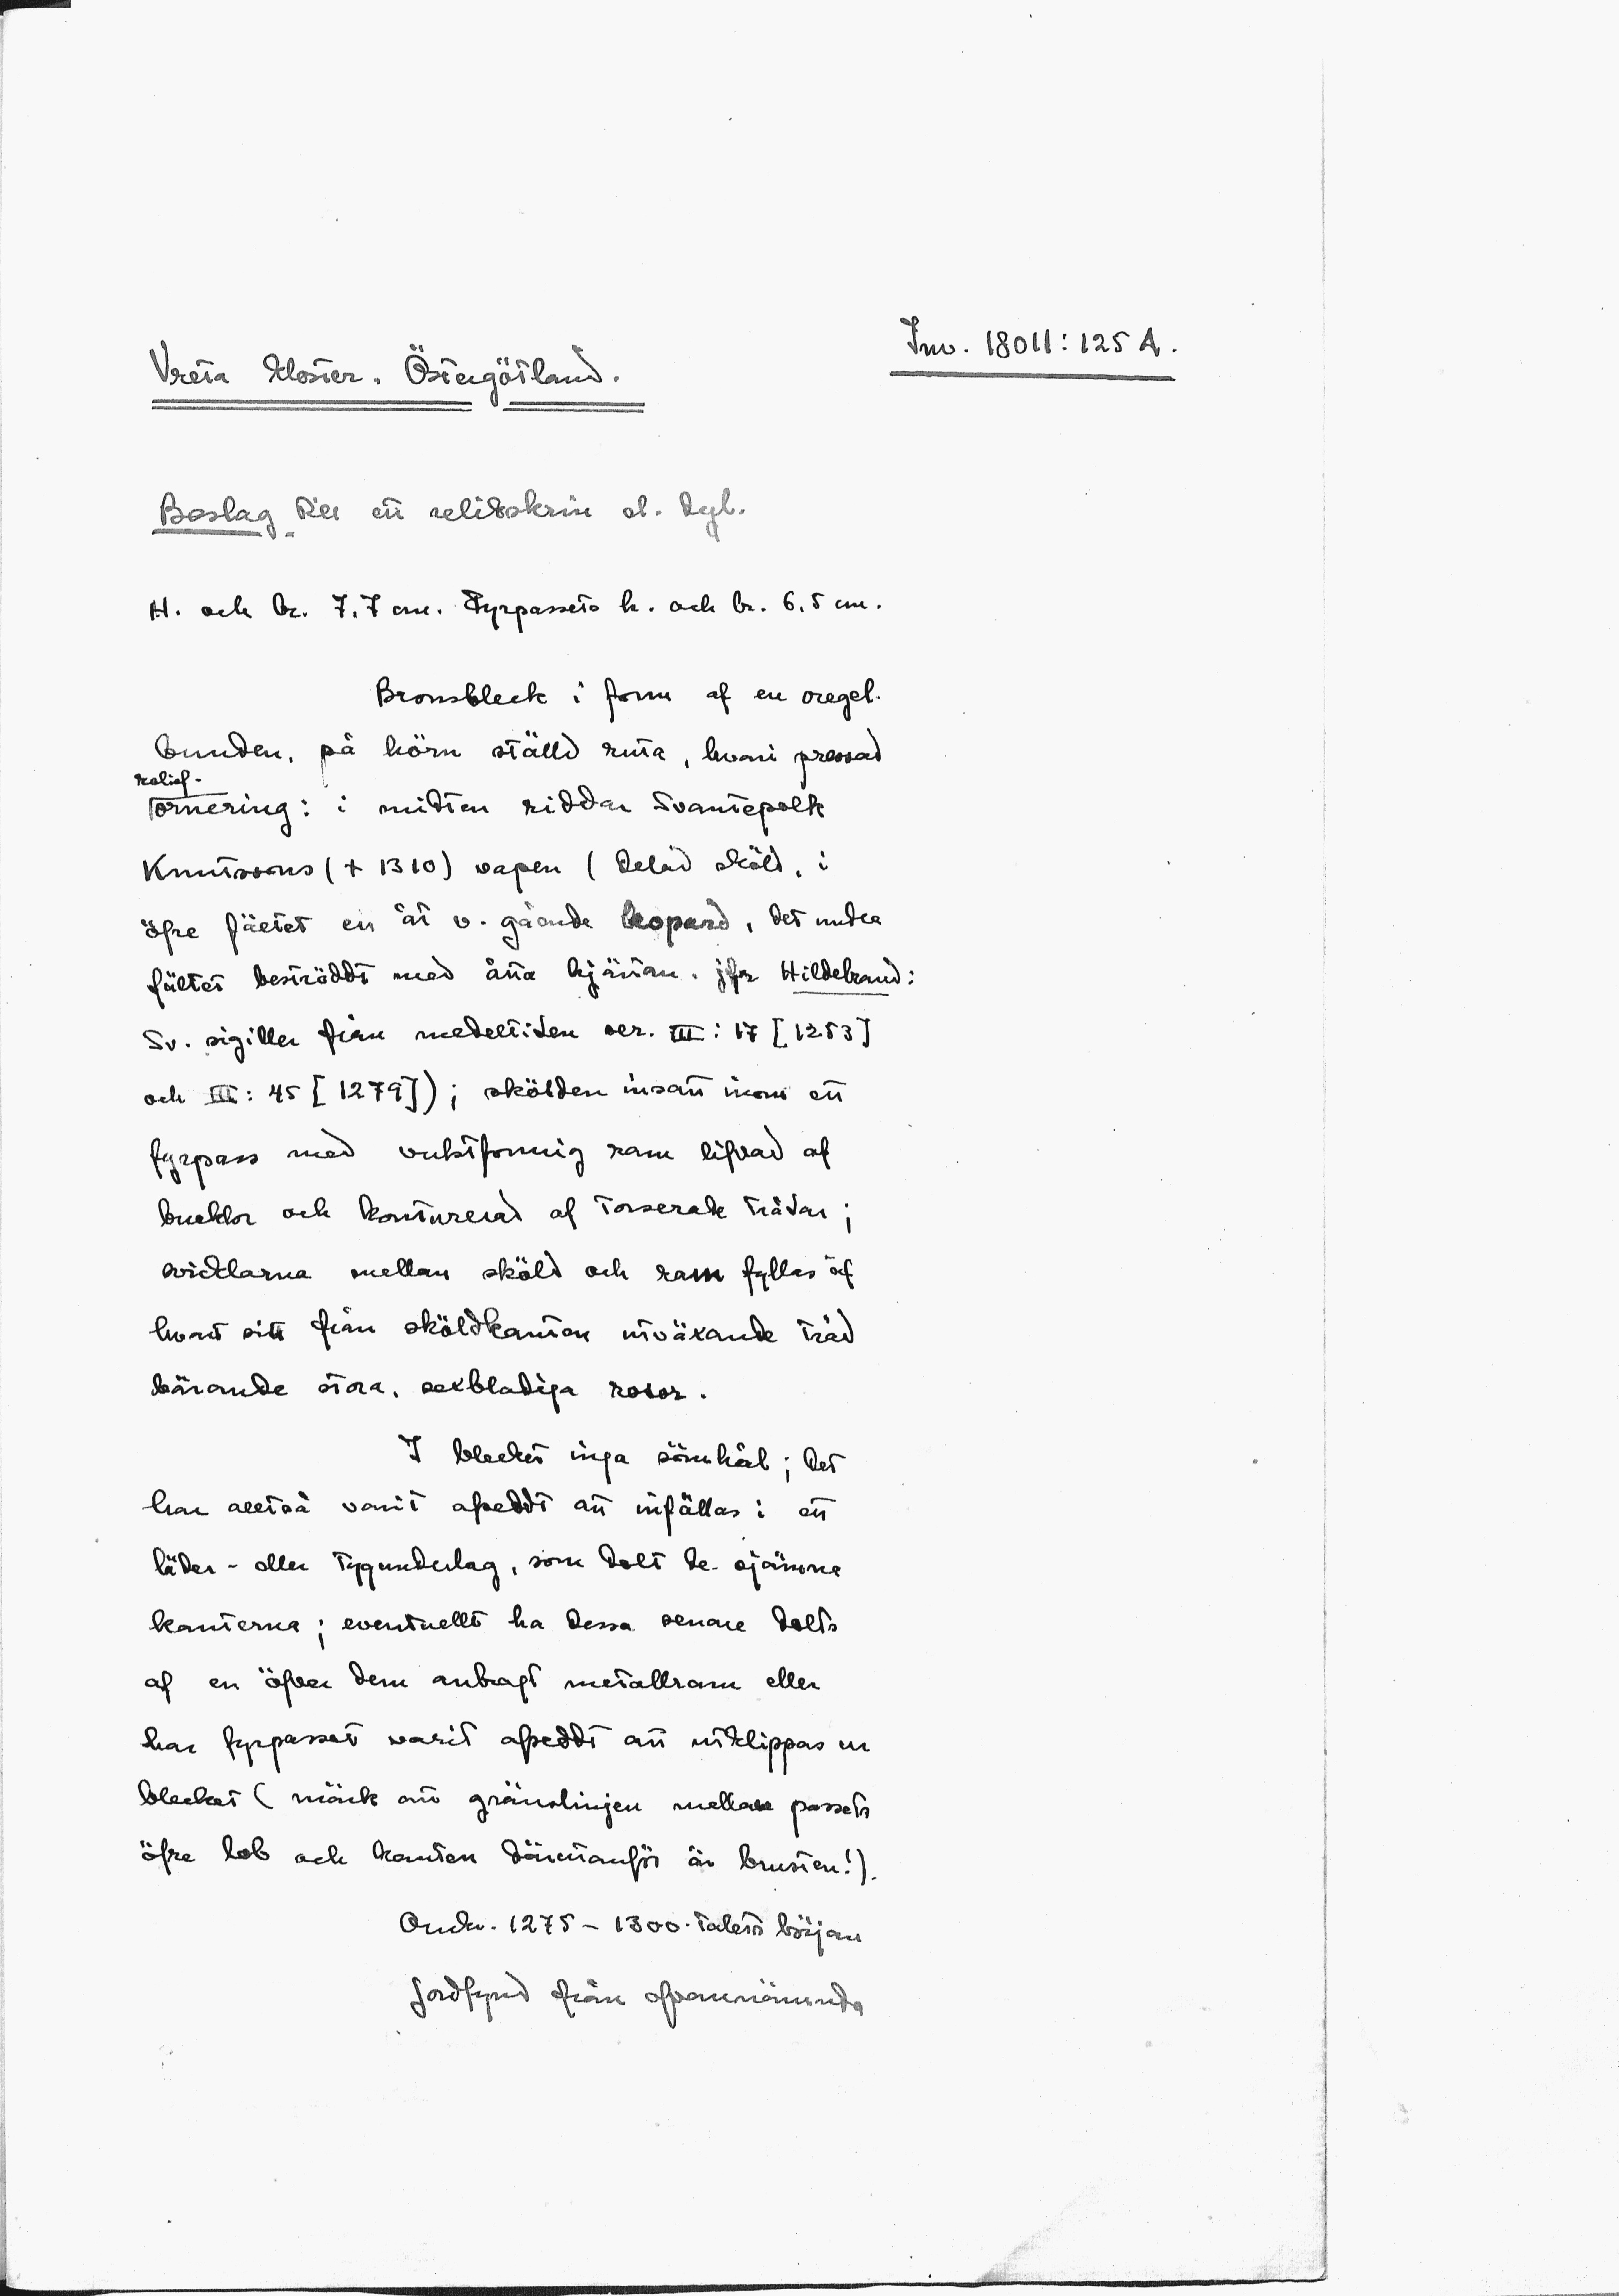 Inv. 18011:125 A.
Vreta kloster. Östergötland.
Beslag till ett relikskrin el. dyl.
H. och br. 7,7 cm. Fyrpassets h. och br. 6,5 cm.
Bronsbleck i form af en oregel-
bunden, på hörn ställd ruta, hvari pressad
relief-
ornering: i midten riddar Svantepolk
Knutssons (+ 1310) vapen (delad sköld, i
öfre fältet en åt v. gående leopard, det undra
fältet beströddt med åtta hjärtan. jfr Hildebrand:
Sv. sigiller från medeltiden ser. III: 17 [1253]
och III: 45 [1279]); skölden insatt inom ett
fyrpass med vulstformig ram lifvad af
bucklor och konturerad af torserade trådar;
svicklarna mellan sköld och ram fyllas af
hvart sitt från sköldkanten utväxande träd
bärande stora, sexbladiga rosor.
I blecket inga sömhål; det
har alltså varit afsedt att infällas i ett
läder- eller tygunderlag, som dolt de ojämna
kanterna; eventuellt ha dessa senare dolts
af en öfver dem anbragt metallram eller
har fyrpasset varit afsedt att utklippas ur
blecket (märk att gränslinjen mellan passets
öfre lob och kanten därutanför är brusten!).
Omkr. 1275 – 1300-talets början
Jordfynd från ofvannämnda